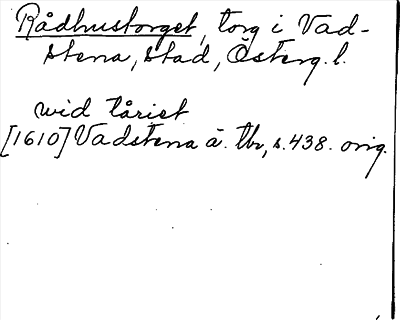 Rådhustorget, torg i Vad-
stena, stad, Österg. l.
wid tåriet
[1610] Vadstena ä. tbr, s. 438. orig.